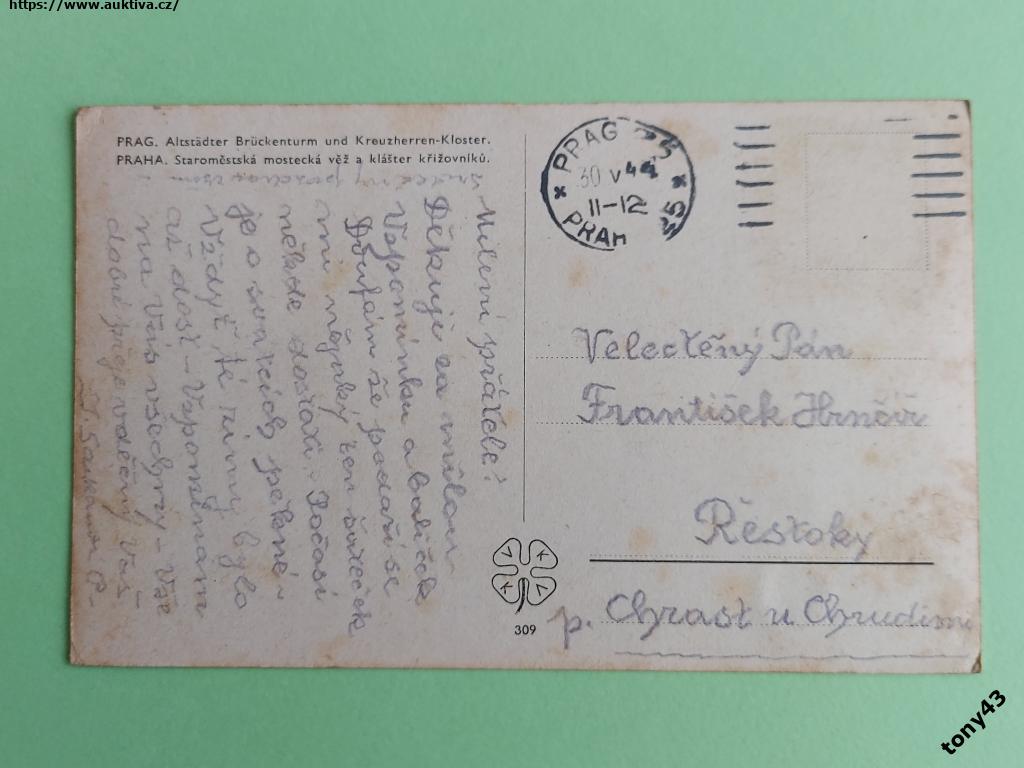 https://www.auktiva.cz/
PRAG. Altstädter Brückenturm und Kreuzherren-Kloster.
PRAHA. Staroměstská mostecká věž a klášter křižovníků.
Milení přátelé!
Děkuji za milou
Vzpomínku a balíček
Doufám že podaří se
mi nějaký ten šáteček
někde dostati. Počasí
je o svátcích pěkné
Vždyť té zimy bylo
až dost - Vzpomínám
na Vás všechny - Vše
dobré přeje vděčný Váš
PRAG 55
30 V 44
11-12
PRAH 55
Velectěný Pán
František Hrnčíř
Řestoky
p. Chrast u Chrudimi
V K V K
309
tony43